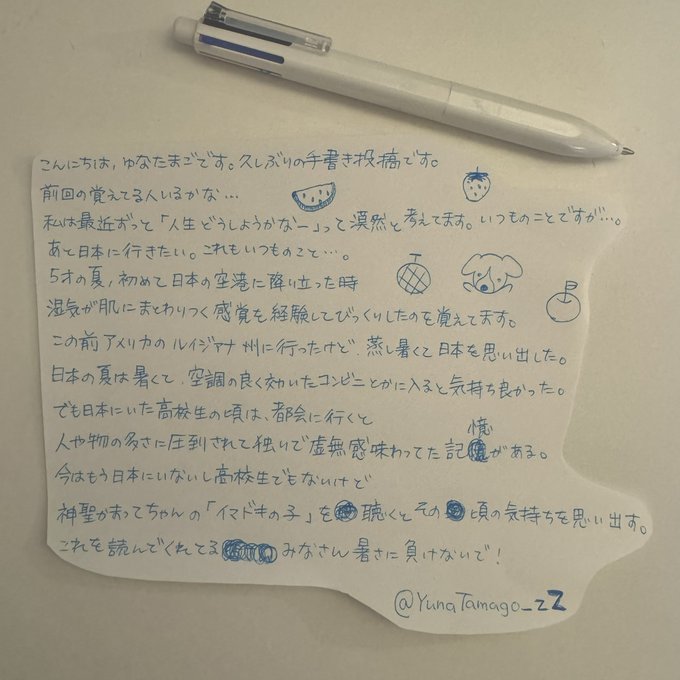 こんにちは, ゆなたまごです。久しぶりの手書き投稿です。
前回の覚えてる人いるかな…
私は最近ずっと「人生どうしようかなー」って漠然と考えてます。いつものことですが…。
あと日本に行きたい。これもいつものこと…。
5才の夏, 初めて日本の空港に降り立った時
湿気が肌にまとわりつく感覚を経験してびっくりしたのを覚えてます。
この前アメリカのルイジアナ州に行ったけど、蒸し暑くて日本を思い出した。
日本の夏は暑くて、空調の良く効いたコンビニとかに入ると気持ち良かった。
でも日本にいた高校生の頃は、都会に行くと
人や物の多さに圧倒されて独りで虚無感味わってた記憶がある。
今はもう日本にいないし高校生でもないけど
神聖かまってちゃんの「イマドキの子」を聴くとその頃の気持ちを思い出す。
これを読んでくれてるみなさん暑さに負けないで!
@YunaTamago_zZ